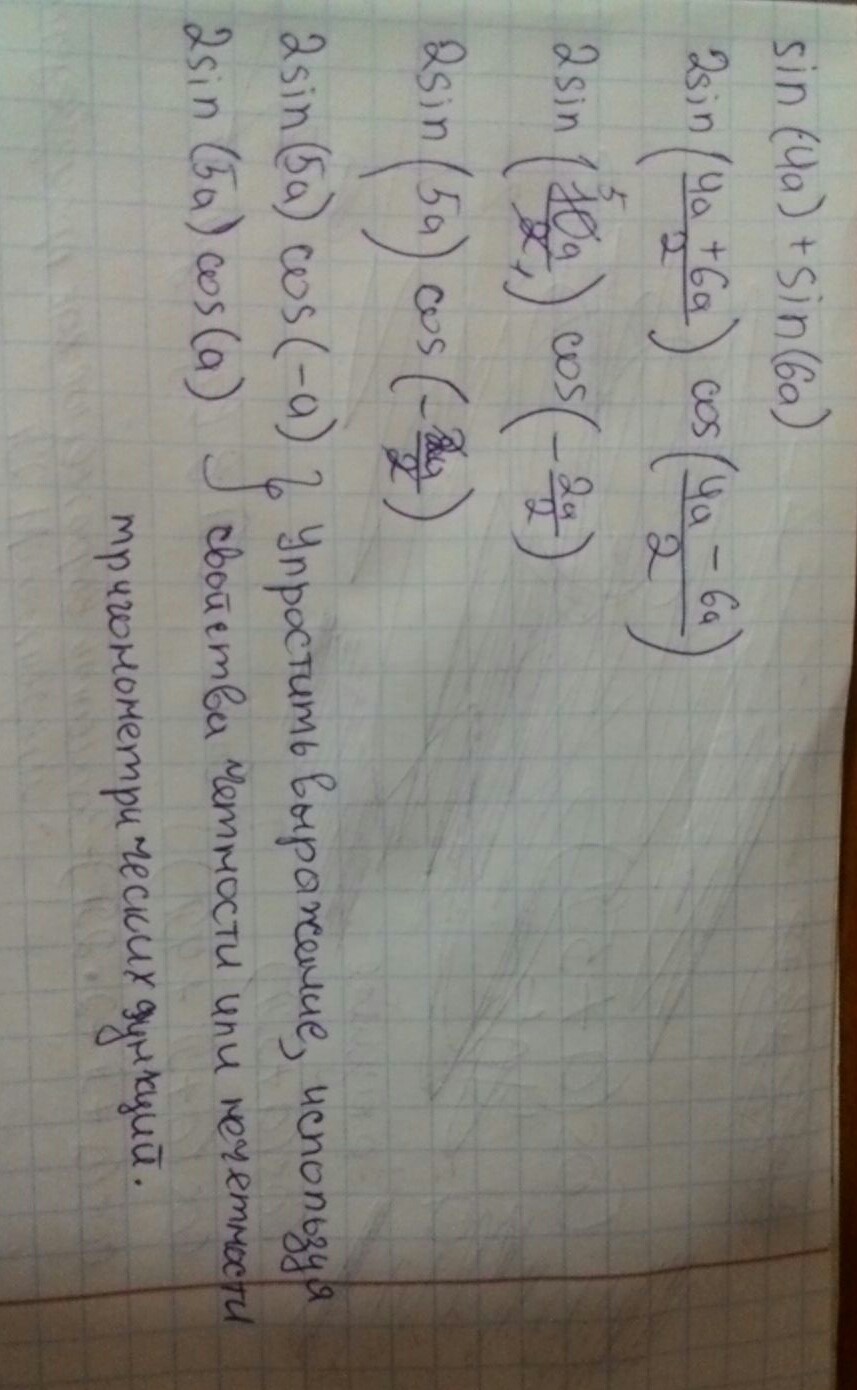 sin(4a) + sin(6a)
2sin (4a + 6a / 2) cos (4a - 6a / 2)
2sin (10a / 2) cos (- 2a / 2)
2sin (5a) cos (- 2a / 2)
2sin (5a) cos (-a) } Упростить выражение, используя
2sin (5a) cos (a) свойства четности или нечетности
тригонометрических функций.